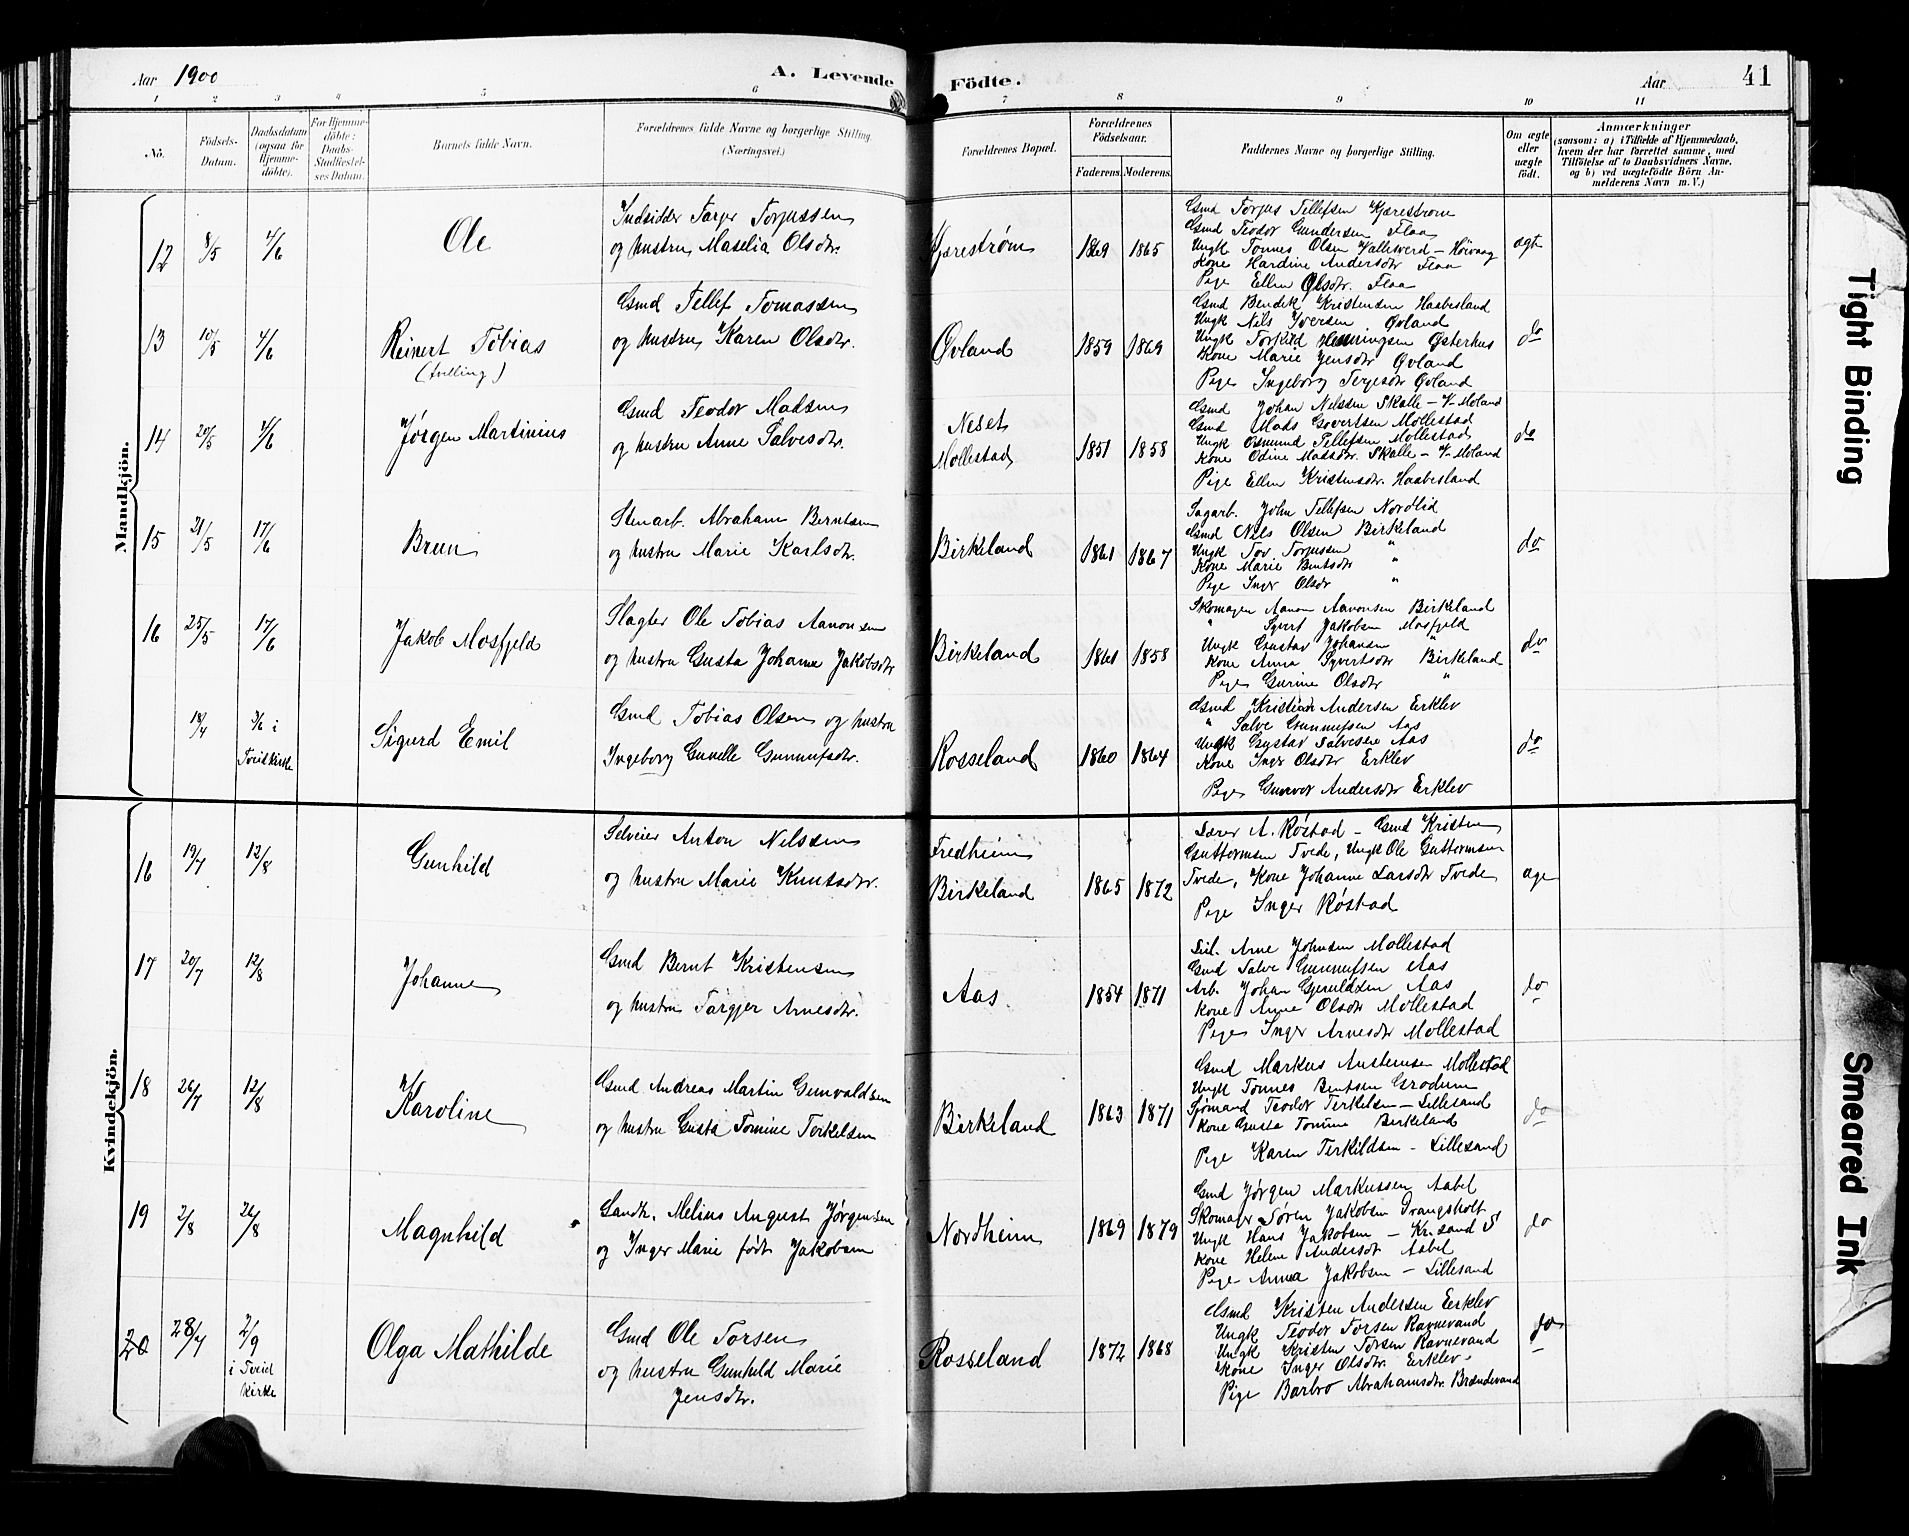 Aar 1900
A. Levende Födte.
Aar 41
1 2 3 4 5 6 7 8 9 10 11
No.
Födsels-Datum.
Daabsdatum (ogsaa for Hjemmedöbte).
For Hjemmedöbte: Daabs-Stadfæstelses Datum.
Barnets fulde Navn.
Forældrenes fulde Navne og borgerlige Stilling. (Næringsvei.)
Forældrenes Bopæl.
Forældrenes Födselsaar.
Faderens. Moderens.
Faddernes Navne og borgerlige Stilling.
Om ægte eller uægte födt.
Anmærkninger
(saasom: a) i Tilfælde af Hjemmedaab, hvem der har forrettet samme, med Tilföielse af to Daabsvidners Navne, og b) ved uægtefödte Börn Anmelderens Navn m. V.)
Mandkjön.
12 8/5 4/6 Ole
Indsidder Tarjer Torjussen
og hustru Maselia Olsdtr.
Kjærestrøm 1869 1865
Gmd Torjus Tellefsen Kjærestrøm
Gmd Teodor Gundersen Flaa
Ungk Tønnes Olsen Vallesverd – Høivaag
Kone Hardine Andersdtr Flaa
Pige Ellen Olsdtr. Flaa
ægte
13 10/5 4/6 Reinert Tobias
(tvilling)
Gmd Tellef Tomassen
og hustru Karen Olsdtr.
Øvland 1859 1869
Gmd Bendik Kristensen Haabesland
Ungk Nils Iversen Øvland
Ungk Torkild Henningsen Østerhus
Kone Marie Jensdtr Øvland
Pige Ingeborg Terjesdtr Øvland
do
14 20/5 4/6 Jørgen Martinius
Gmd Teodor Madsen
og hustru Anne Salvesdtr.
Neset
Mollestad 1851 1858
Gmd Johan Nilssen Skalle – V-Moland
Gmd Mads Govertsen Mollestad
Ungk Osmund Tellefsen Mollestad
Kone Odine Madsdtr. Skalle – V-Moland
Pige Ellen Kristensdtr. Haabesland
do
15 21/5 17/6 Brun
Stenarb. Abraham Berntsen
og hustru Marie Karlsdtr.
Birkeland 1861 1867
Sagarb. John Tellefsen Nordlid
Gmd Nils Olsen Birkeland
Ungk Tov Torjussen "
Kone Marie Bentsdtr "
Pige Inger Olsdtr "
do
16 25/5 17/6 Jakob Mosfjeld
Slagter Ole Tobias Aanonsen
og hustru Gusta Johanne Jakobsdtr
Birkeland 1861 1858
Skomager Aanon Aanonsen Birkeland
" Syvert Jakobsen Mosfjeld
Ungk Gustav Johansen "
Kone Anna Syvertsdtr Birkeland
Pige Gurine Olsdtr "
do
18/4 3/6 i
Tveidkirke
Sigurd Emil
Gmd Tobias Olsen og hustru
Ingeborg Gunelle Gunnufsdtr.
Rosseland 1860 1864
Gmd Kristian Andersen Erklev
" Salve Gunnufsen Aas
Ungk Gustav Salvesen Aas
Kone Inger Olsdtr Erklev
Pige Gunvor Andersdtr Erklev
do
Kvindekjön.
16 19/7 12/8 Gunhild
Selveier Anton Nilssen
og hustru Marie Knutsdtr.
Fredheim
Birkeland 1865 1872
Lærer A. Røstad – Gmd Kristen
Guttormsen Tvede, Ungk Ole Guttormsen
Tvede, Kone Johanne Larsdtr Tvede
Pige Inger Røstad
ægte
17 20/7 12/8 Johanne
Gmd Bernt Kristensen
og hustru Targjer Arnesdtr.
Aas. 1854 1871
Arne Johnsen Mollestad
Gmd Salve Gunnufsen Aas
Arb. Johan Gjeruldsen Aas
Kone Anne Olsdtr Mollestad
Pige Inger Arnesdtr Mollestad
do
18 26/7 12/8 Karoline
Gmd Andreas Martin Gunvaldsen
og hustru Gusta Tomine Terkelsen
Birkeland 1863 1871
Gmd Markus Austensen Mollestad
Ungk Tønnes Bentsen Grødum
Sjømand Teodor Terkelsen – Lillesand
Kone Gusta Tomine Birkeland
Pige Karen Terkildsen – Lillesand
do
19 2/8 26/8 Magnhild
Landh. Melius August Jørgensen
og Inger Marie født Jakobsen
Nordheim 1869 1879
Gmd Jørgen Markussen Aabel
Skomager Søren Jakobsen Drangsholt
Ungk Hans Jakobsen – Kr.sand S
Kone Helene Andersdtr Aabel
Pige Anna Jakobsen – Lillesand
do
20 28/7 2/9
i Tveid
kirke
Olga Mathilde
Gmd Ole Torsen
og hustru Gunhild Marie
Jensdtr.
Rosseland 1872 1868
Gmd Kristen Andersen Eerklev
Ungk Teodor Torsen Ravnevand
Ungk Kristen Torsen Ravnevand
Kone Inger Olsdtr. Erklev
Pige Barbro Abrahamsdtr. Brændevand
do
Tight Binding
Smeared Ink